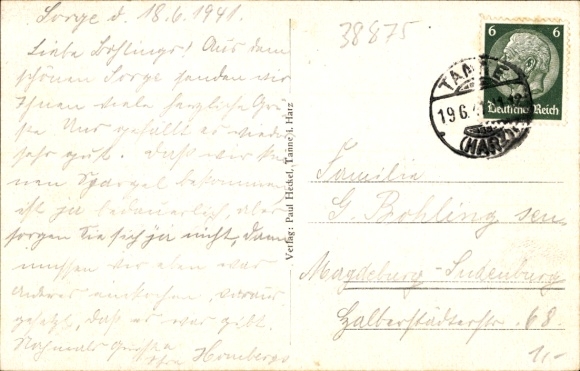 Sorge d. 18.6.1941.
Liebe Bohlings! Aus dem
schönen Sorge senden wir
Ihnen viele herzliche Grü-
sse. Uns gefällt es wieder
sehr gut. Daß wir kei
nen Spargel bekommen,
ist ja bedauerlich, aber
sorgen Sie sich ja nicht, dann
müssen wir eben was
anderes einkochen, voraus
gesetzt, daß es was gibt.
Nochmals Grüsse
Ihre Hombergs
Verlag: Paul Heckel, Tanne i. Harz
38875
6 6
Deutsches Reich
TANNE
19.6.
(HARZ)
Familie
G. Bohling sen
Magdeburg-Sudenburg
Halberstädterstr. 68.
1,-